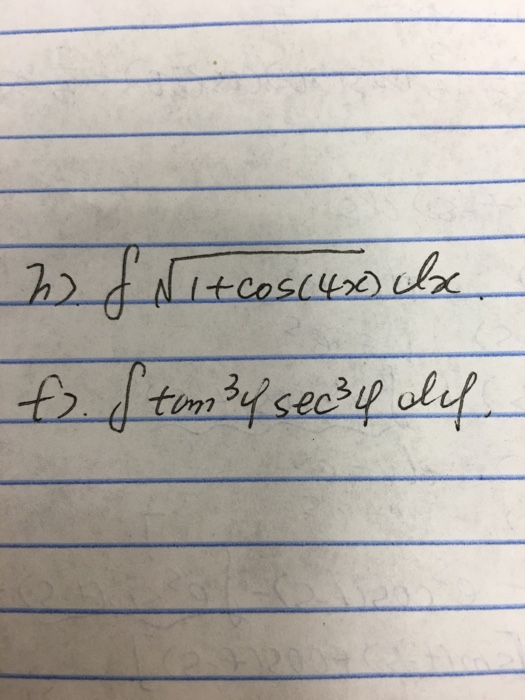 h). ∫ √1+cos(4x) dx.
f). ∫ tan³φ sec³φ dφ.